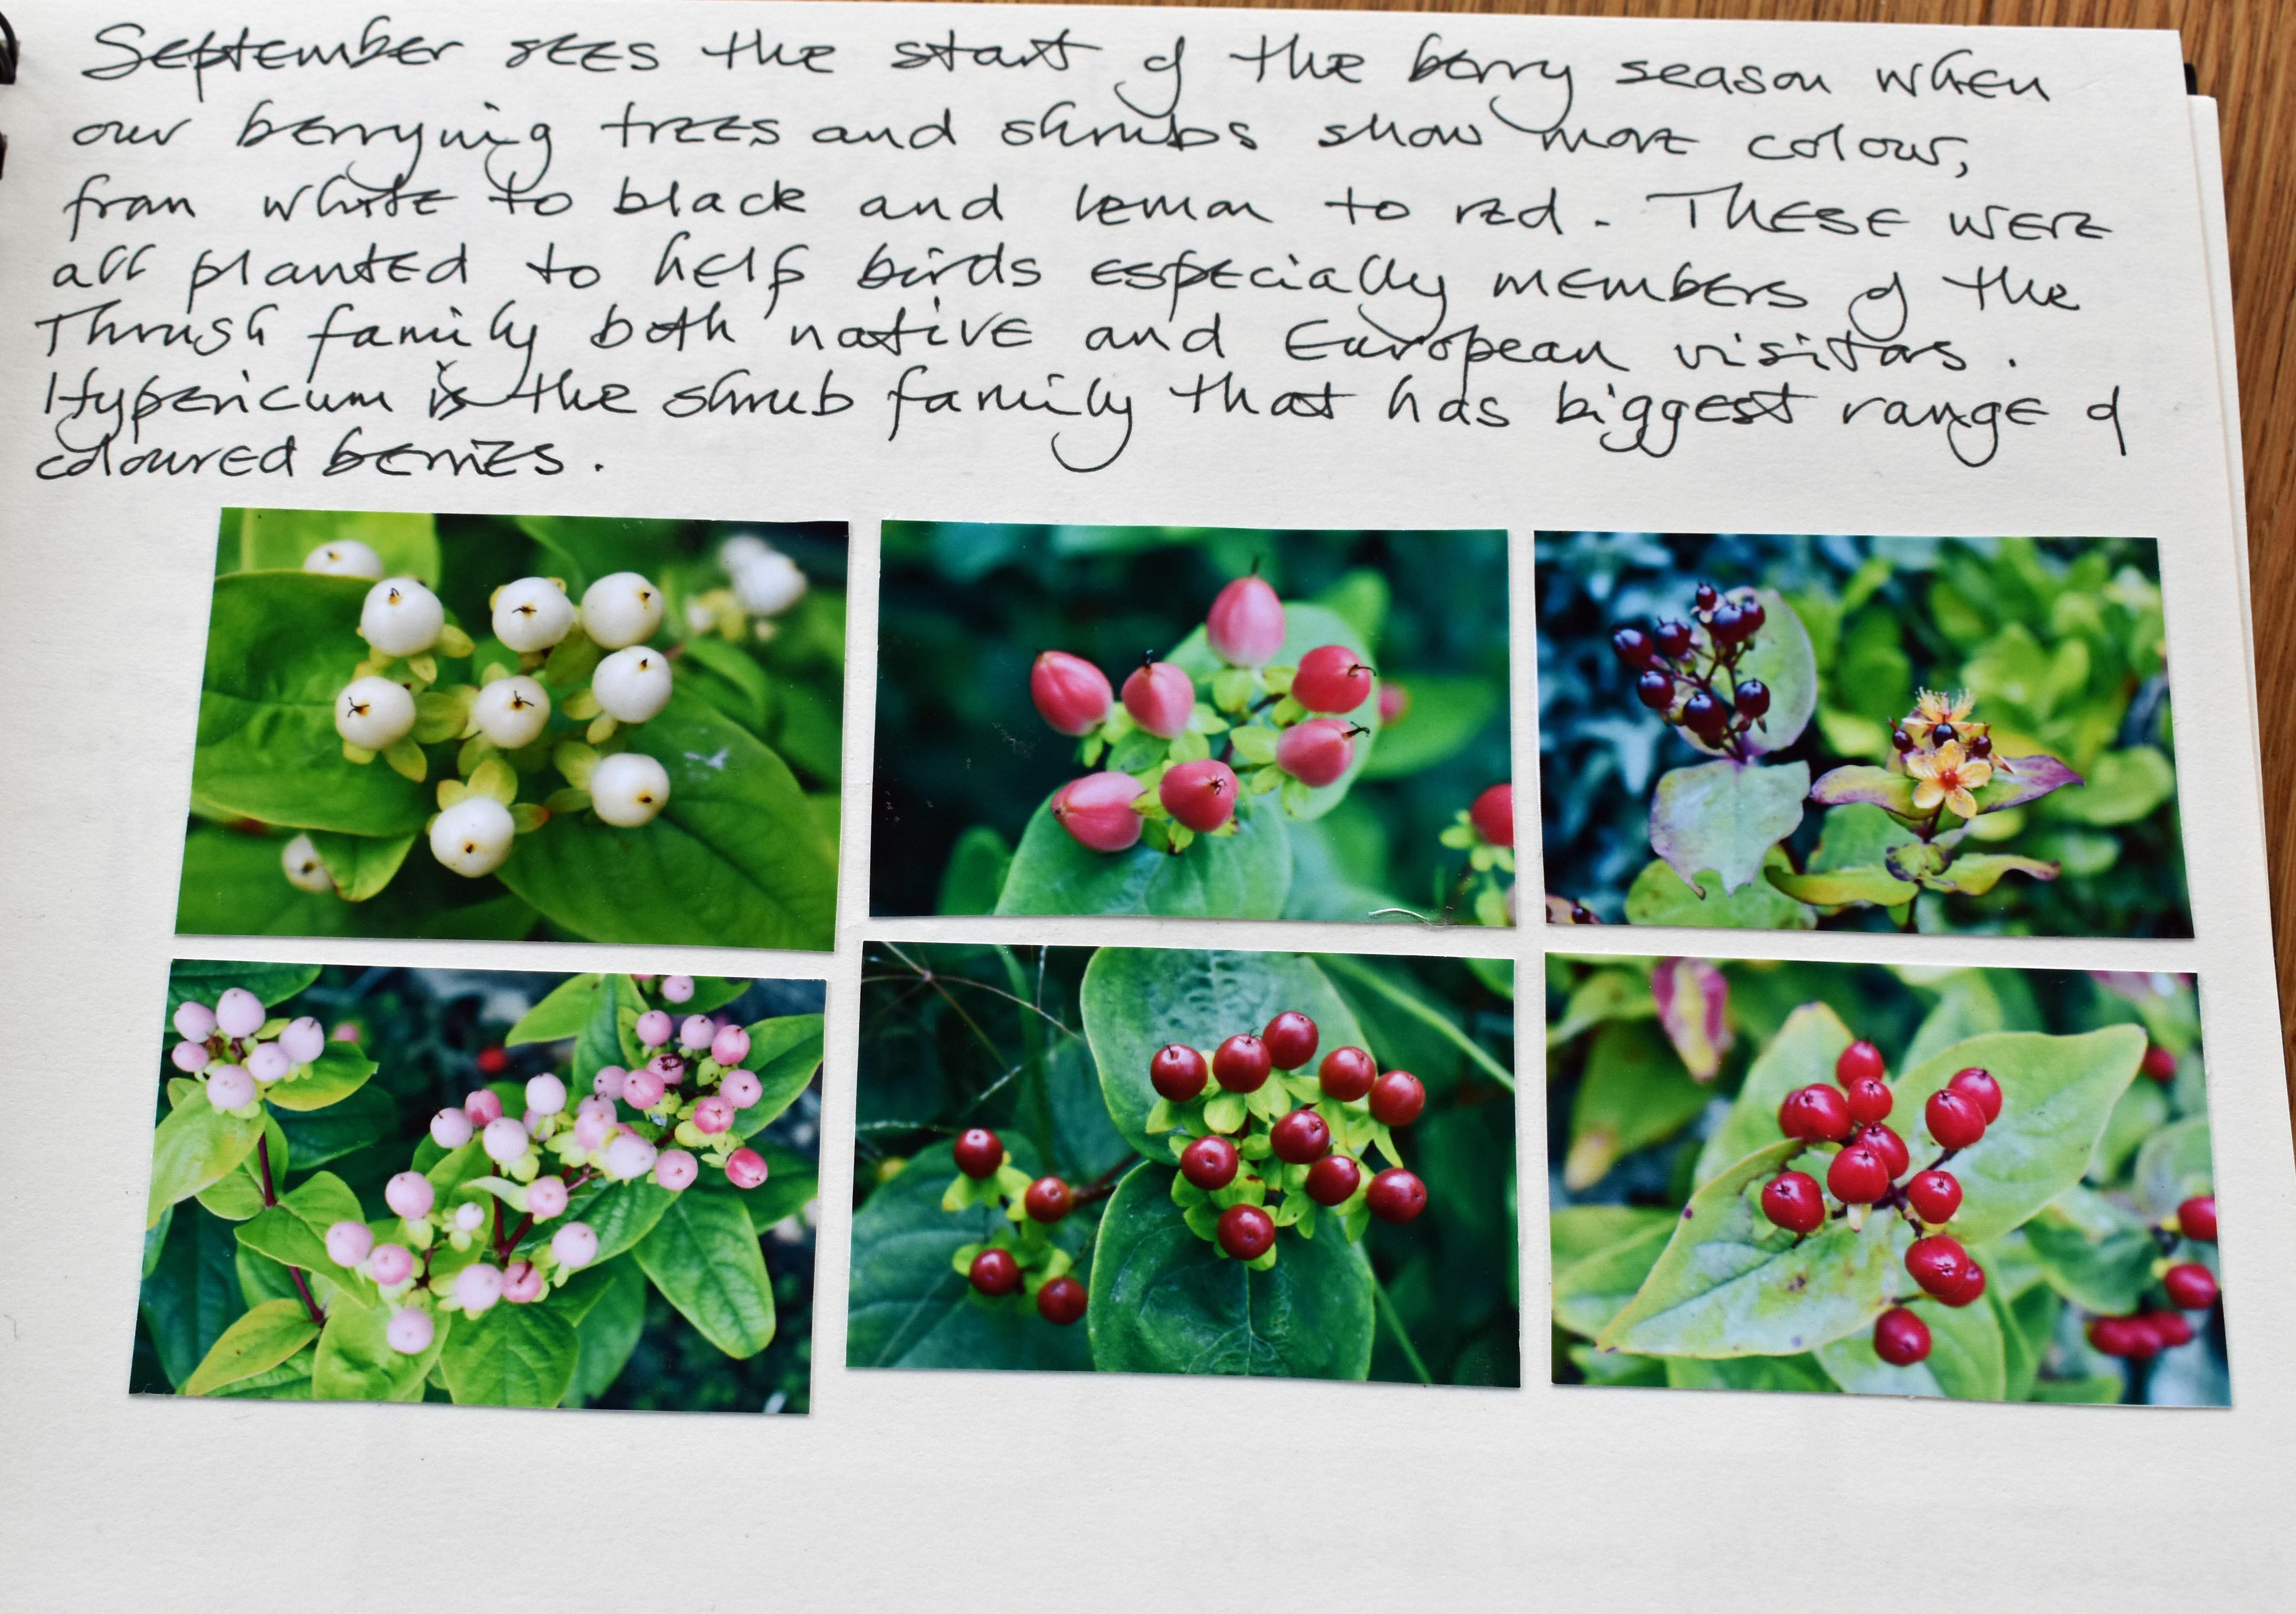 September sees the start of the berry season when
our berrying trees and shrubs show more colour,
from white to black and lemon to red. These were
all planted to help birds especially members of the
Thrush family both native and European visitors.
Hypericum is the shrub family that has biggest range of
coloured berries.